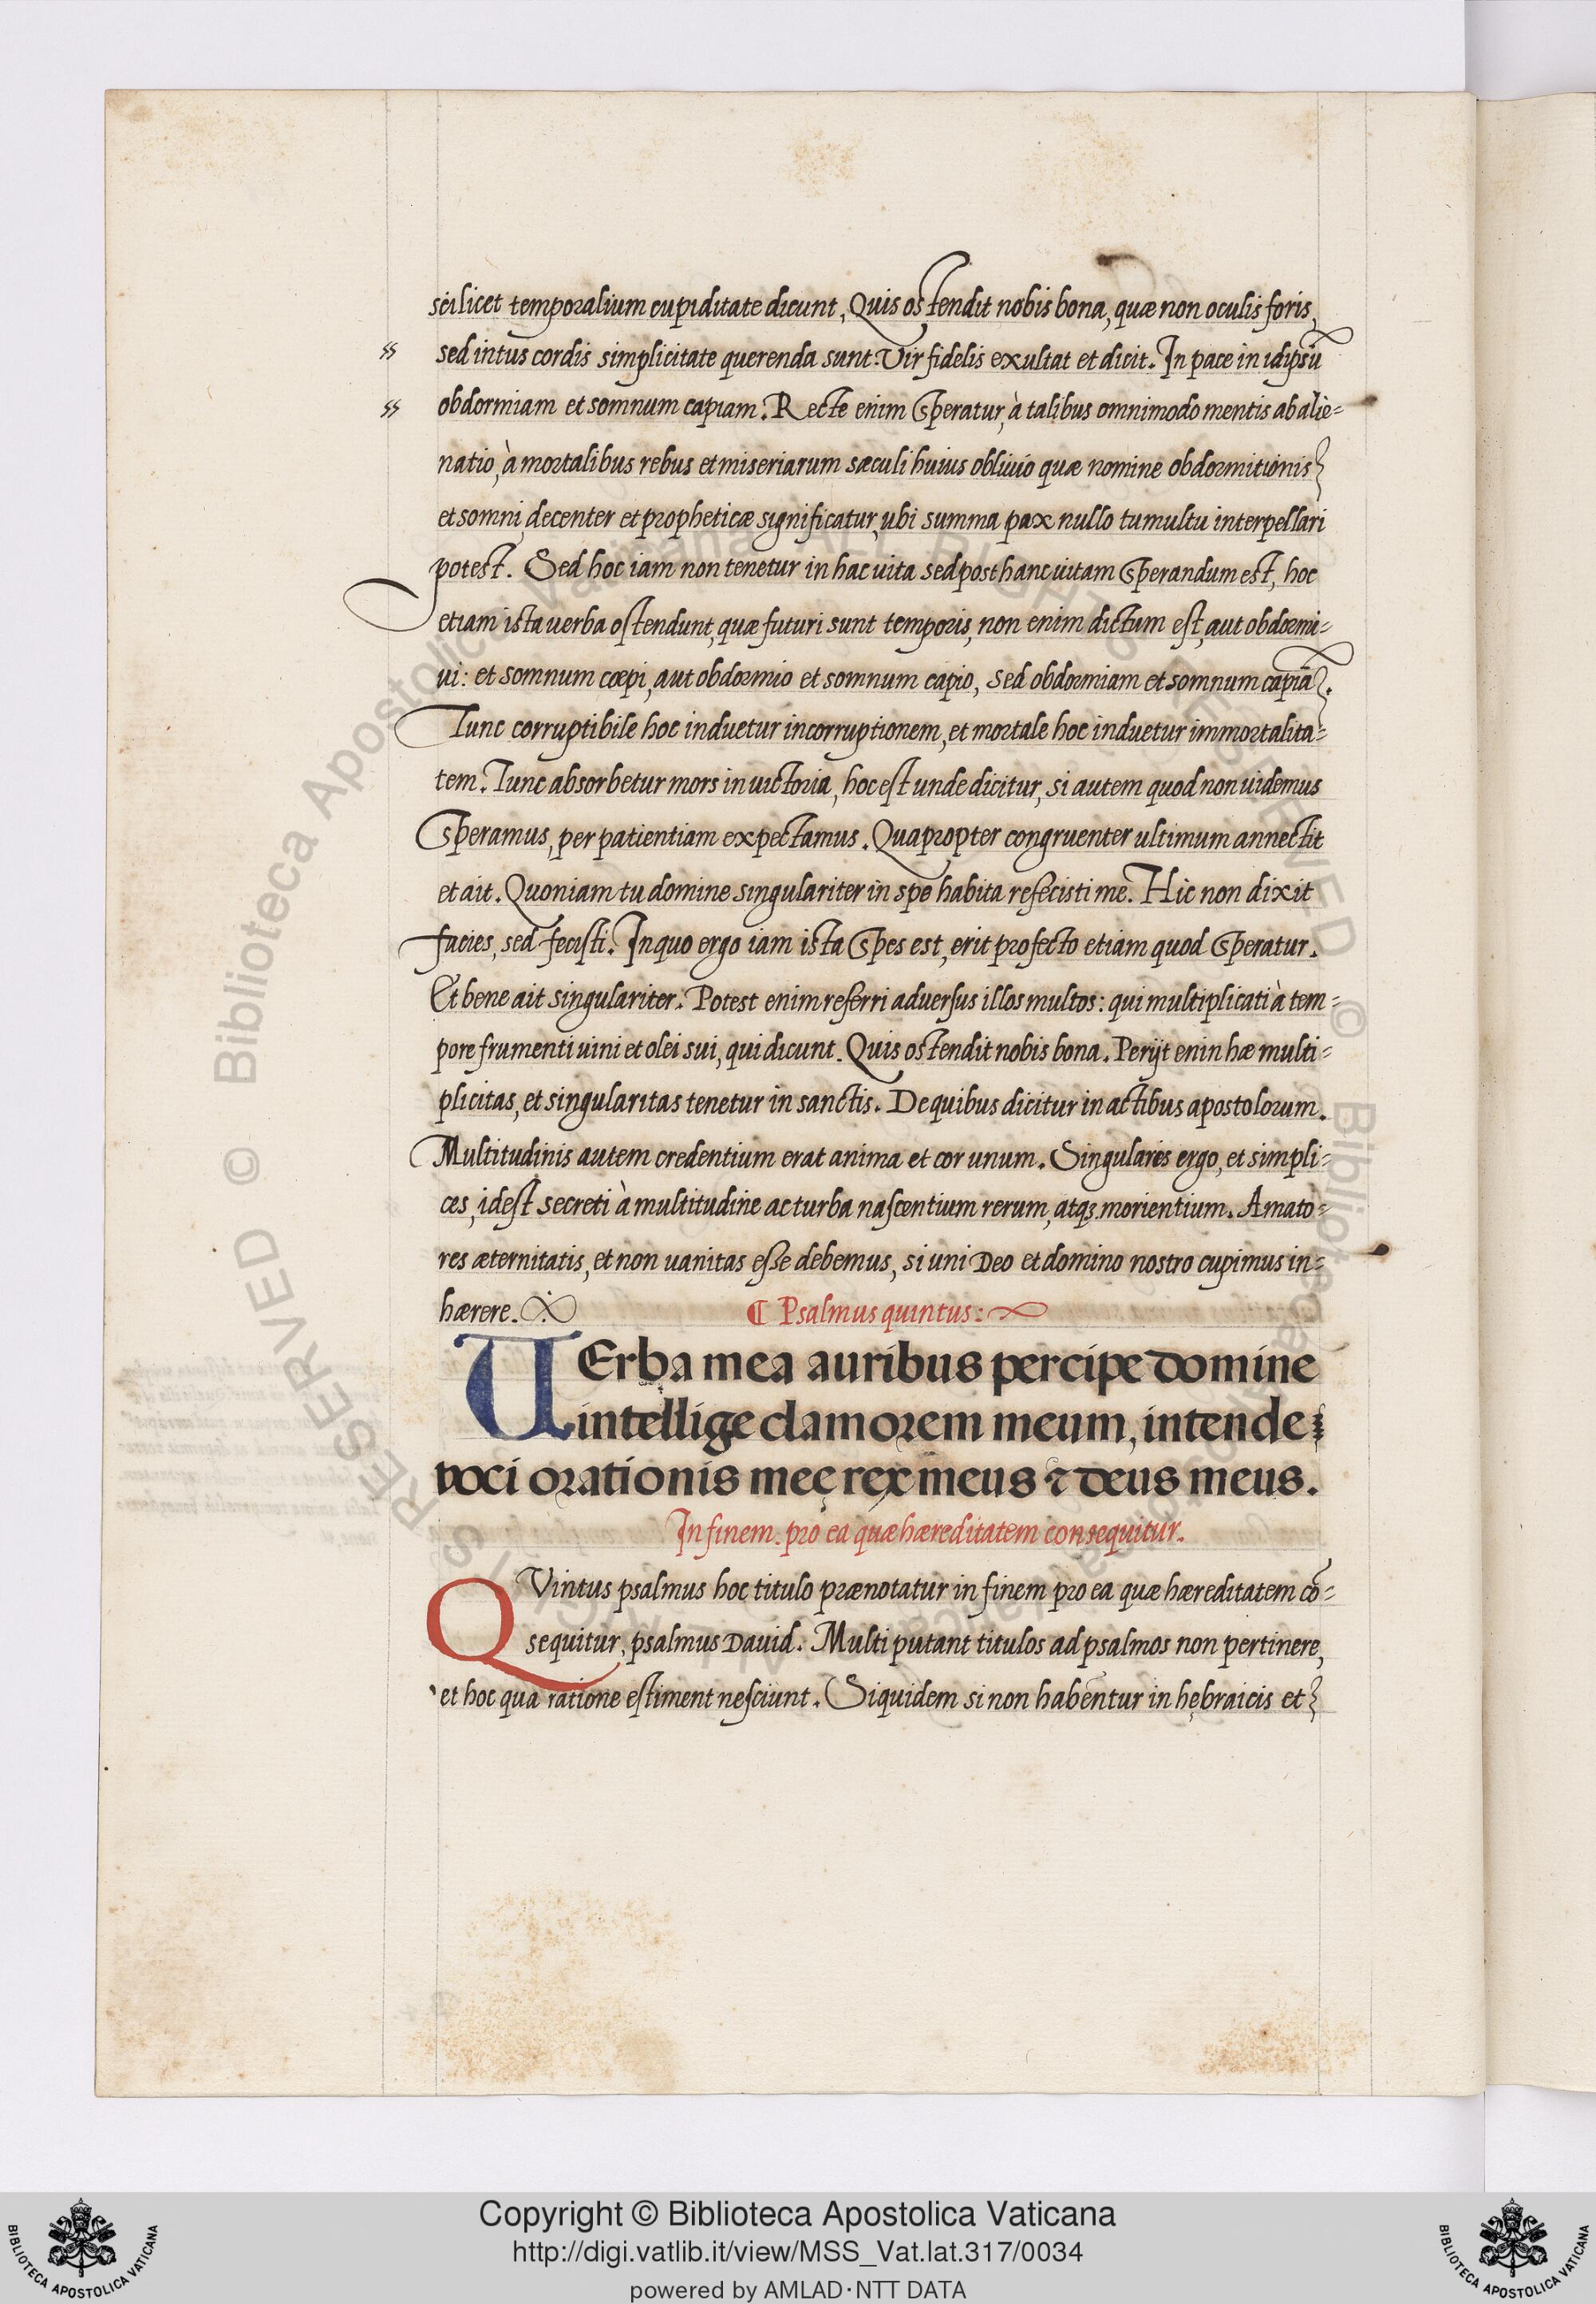 scilicet temporalium cupiditate dicunt, Quis ostendit nobis bona, quæ non oculis foris,
sed intus cordis simplicitate querenda sunt. Vir fidelis exultat et dicit. In pace in idipsū
obdormiam et somnum capiam. Recte enim speratur, à talibus omnimodo mentis ab alie=
natio, à mortalibus rebus et miseriarum sæculi huius oblivio quæ nomine obdormitionis
et somni, decenter et propheticæ significatur, ubi summa pax nullo tumultu interpellari
potest. Sed hoc iam non tenetur in hac vita sed post hanc vitam sperandum est, hoc
etiam ista verba ostendunt, quæ futuri sunt temporis, non enim dictum est, aut obdormi=
ui: et somnum cœpi, aut obdormio et somnum capio, sed obdormiam et somnum capiā.
Tunc corruptibile hoc induetur incorruptionem, et mortale hoc induetur immortalita=
tem. Tunc absorbetur mors in victoria, hoc est unde dicitur, si autem quod non videmus
speramus, per patientiam expectamus. Quapropter congruenter ultimum annectit
et ait. Quoniam tu domine singulariter in spe habita refecisti me. Hic non dixit
facies, sed fecisti. In quo ergo iam ista spes est, erit profecto etiam quod speratur.
Et bene ait singulariter. Potest enim referri adversus illos multos: qui multiplicati à tem=
pore frumenti vini et olei sui, qui dicunt. Quis ostendit nobis bona. Perijt enin hæ multi=
plicitas, et singularitas tenetur in sanctis. De quibus dicitur in actibus apostolorum.
Multitudinis autem credentium erat anima et cor unum. Singulares ergo, et simpli=
ces, idest secreti à multitudine ac turba nascentium rerum, atq; morientium. Amato=
res æternitatis, et non vanitas esse debemus, si uni Deo et domino nostro cupimus in=
hærere.
¶ Psalmus quintus:
VErba mea auribus percipe domine
intellige clamorem meum, intende
voci orationis meę rex meus ⁊ deus meus.
In finem. pro ea quæ hæreditatem consequitur.
QVintus psalmus hoc titulo prænotatur in finem pro ea quæ hæreditatem cō=
sequitur, psalmus David. Multi putant titulos ad psalmos non pertinere,
et hoc qua ratione estiment nesciunt. Siquidem si non habentur in hębraicis et
© Biblioteca Apostolica Vaticana ALL RIGHTS RESERVED
© Biblioteca Apostolica Vaticana ALL RIGHTS RESERVED
Copyright © Biblioteca Apostolica Vaticana
http://digi.vatlib.it/view/MSS_Vat.lat.317/0034
powered by AMLAD·NTT DATA
BIBLIOTECA APOSTOLICA VATICANA
BIBLIOTECA APOSTOLICA VATICANA